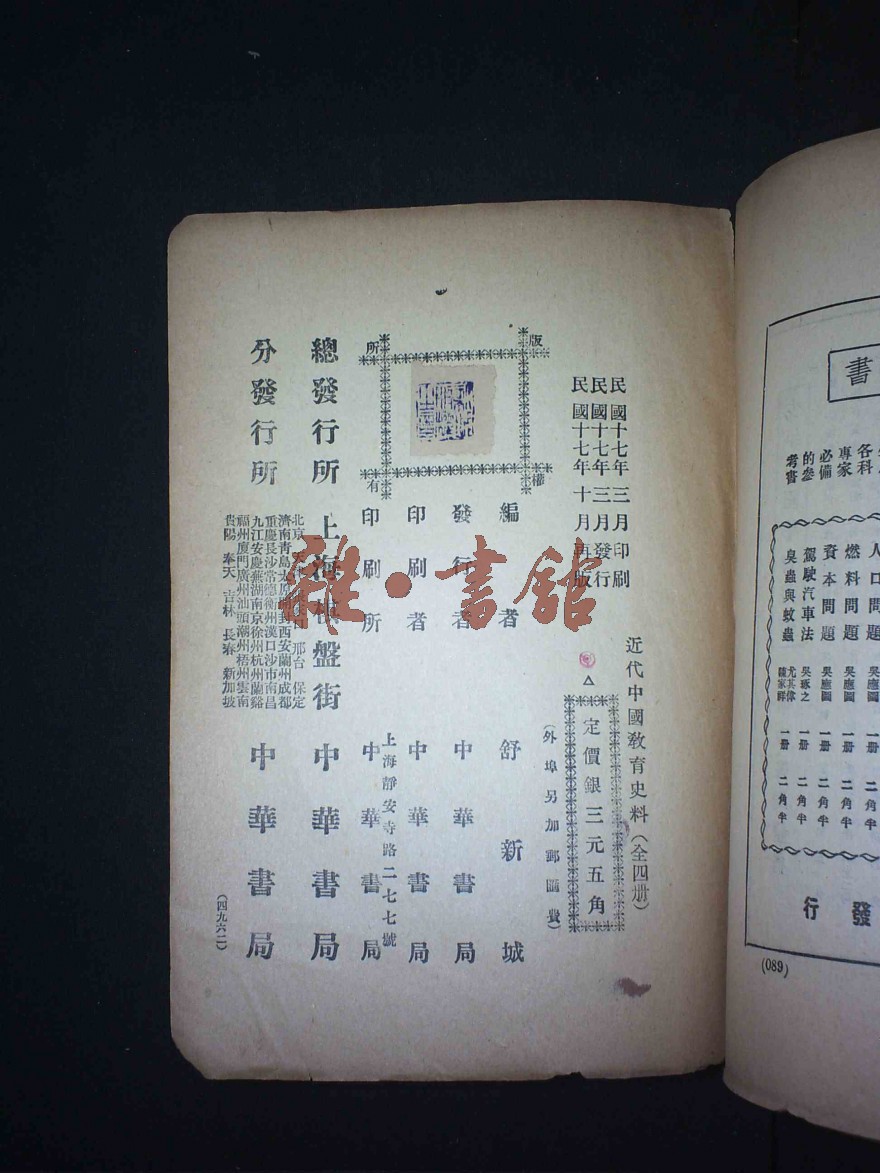 民國十七年三月印刷
民國十七年三月發行
民國十七年十月再版
近代中國教育史料(全四册)
定價銀三元五角
(外埠另加郵匯費)
版權所有
編者 舒新城
發行者 中華書局
印刷者 中華書局
上海靜安寺路二七七號
印刷所 中華書局
總發行所 上海棋盤街 中華書局
分發行所 中華書局
邢台 保定
濟南青島太原 西安蘭州成都
重慶長沙常德衡州漢口沙市南昌
九江安慶蕪湖南京徐州杭州蘭谿
福州廈門廣州汕頭潮州梧州雲南
貴陽 奉天 吉林 長春 新加坡
(四九六二)
雜·書館
書
各科
專家
必備
的參
考書
人口問題 吳應圖 一册 二角半
燃料問題 吳應圖 一册 二角半
資本問題 吳應圖 一册 二角半
駕駛汽車法 吳琢之 一册 二角半
臭蟲與蚊蟲 尤其偉 一册 二角半
發行
(089)